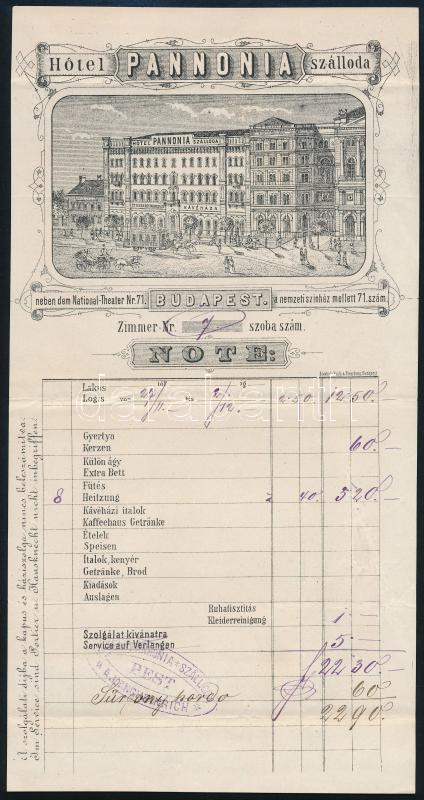 Hôtel PANNONIA szálloda
HÔTEL PANNONIA SZÁLLODA
KÁVÉHÁZA
neben dem National-Theater Nr. 71. BUDAPEST. a nemzeti színház mellett 71. szám.
Zimmer Nr. 7 szoba szám.
NOTE:
Lakás
Logis von 27/11 bis 2/12 2.50 12.50
Gyertya
Kerzen 60
Külön ágy
Extra Bett
Fűtés
8 Heitzung à 40 3 20
Kávéházi italok
Kaffeehaus Getränke
Ételek
Speisen
Italok, kenyér
Getränke, Brod
Kiadások
Auslagen
Ruhatisztitás
Kleiderreinigung 1
Szolgálat kívánatra
Service auf Verlangen 5
22 30
60
22 90
PANNONIA SZÁLLODA
PEST
A szolgálati díjba a kapus és háziszolga nincs beleszámítva.
Im Service sind Portier u. Hausknecht nicht inbegriffen.
darabanth